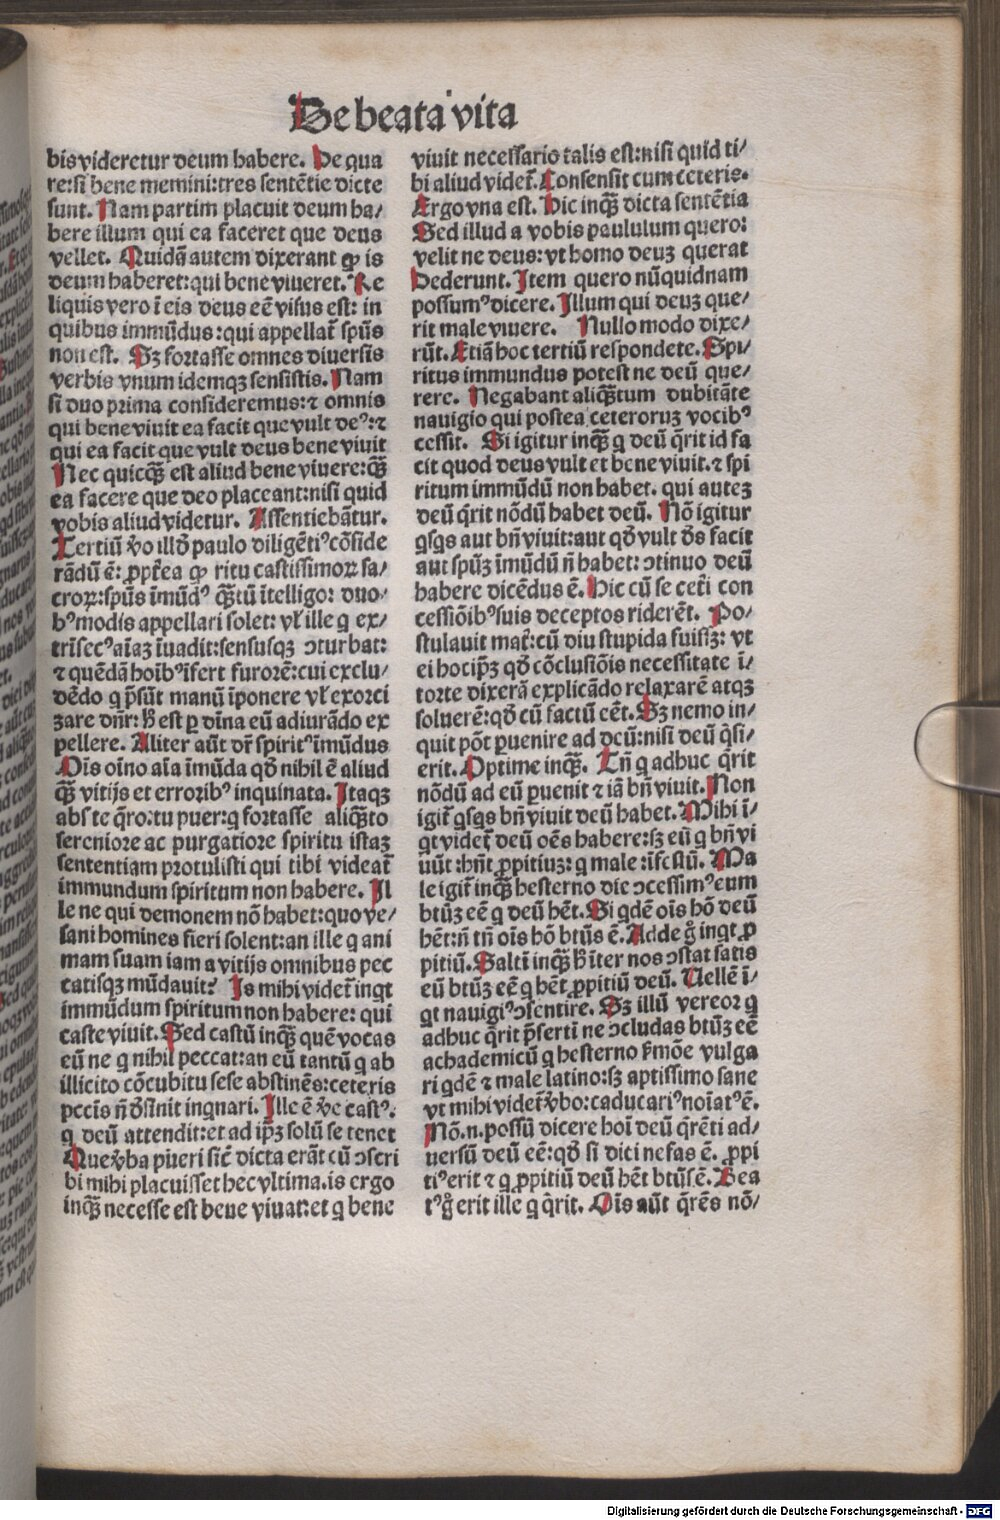 De beata vita
bis videretur deum habere. De qua
re: si bene memini: tres sentẽtie dicte
sunt. Nam partim placuit deum ha/
bere illum qui ea faceret que deus
vellet. Quidã autem dixerant ꝙ is
deum haberet: qui bene viueret. Re
liquis vero ĩ eis deus eẽ visus est: in
quibus immũdus: qui appellat̃ spũs
non est. Sꝫ fortasse omnes diuersis
verbis vnum idemqꝫ sensistis. Nam
si duo prima consideremus: ⁊ omnis
qui bene viuit ea facit que vult deꝰ: ⁊
qui ea facit que vult deus bene viuit
Nec quicꝙ̃ est aliud bene viuere: ꝙ̃
ea facere que deo placeant: nisi quid
vobis aliud videtur. Assentiebãtur.
Tertiũ ṽo illđ paulo diligẽtiꝰ cõside
rãdũ ẽ: ꝓpt̃ea ꝙ ritu castissimoꝝ sa/
croꝝ: spũs ĩmũdꝰ ꝙ̃tũ ĩtelligo: duo/
bꝰ modis appellari solet: vł ille ꝗ ex/
trĩsecꝰ aĩaꝫ ĩuadit: sensusqꝫ ↄturbat:
⁊ quẽdã hoĩbꝰ ĩfert furorẽ: cui exclu/
dẽdo ꝗ p̃sũt manũ ĩponere vł exorci
zare dñr: ħ est ꝑ dĩna eũ adiurãdo ex
pellere. Aliter aũt dr̃ spiritꝰ ĩmũdus
Oĩs oĩno aĩa ĩmũda qđ nihil ẽ aliud
ꝙ̃ vitijs et erroribꝰ inquinata. Itaqꝫ
abs te q̃ro: tu puer: ꝗ fortasse aliꝙ̃to
sereniore ac purgatiore spiritu istaꝫ
sententiam protulisti qui tibi videat̃
immundum spiritum non habere. Il
le ne qui demonem nõ habet: quo ve/
sani homines fieri solent: an ille ꝗ ani
mam suam iam a vitijs omnibus pec
catisqꝫ mũdauit? Is mihi videt̃ inqt
immũdum spiritum non habere: qui
caste viuit. Sed castũ inꝙ̃ quẽ vocas
eũ ne ꝗ nihil peccat: an eũ tantũ ꝗ ab
illicito cõcubitu sese abstinẽs: ceteris
pccĩs ñ đsinit inqnari. Ille ẽ ṽe castꝰ.
ꝗ deũ attendit: et ad ip̃ꝫ solũ se tenet
Que ṽba pueri sic̃ dicta erãt cũ ↄscri
bi mihi placuisset hec vltima. is ergo
inꝙ̃ necesse est bene viuat: et ꝗ bene
viuit necessario talis est: nisi quid ti/
bi aliud videt̃. Consensit cum ceteris.
Ergo vna est. Hic inꝙ̃ dicta sentẽtia
Sed illud a vobis paululum quero:
velit ne deus: vt homo deuꝫ querat
Dederunt. Item quero nũquidnam
possumꝰ dicere. Illum qui deuꝫ que/
rit male viuere. Nullo modo dixe/
rũt. Etiã hoc tertiũ respondete. Spi/
ritus immundus potest ne deũ que/
rere. Negabant aliꝙ̃tum dubitãte
nauigio qui postea ceteroruꝫ vocibꝰ
cessit. Si igitur inꝙ̃ ꝗ deũ q̃rit id fa
cit quod deus vult et bene viuit. ⁊ spi
ritum immũdũ non habet. qui auteꝫ
deũ q̃rit nõdũ habet deũ. Nõ igitur
ꝗsꝗs aut bñ viuit: aut qđ vult đs facit
aut spũꝫ ĩmũdũ ñ habet: ↄtinuo deũ
habere dicẽdus ẽ. Hic cũ se cet̃i con
cessiõibꝰ suis deceptos riderẽt. Po/
stulauit mat̃: cũ diu stupida fuissꝫ: vt
ei hoc ip̃ꝫ qđ cõclusiõis necessitate ĩ/
torte dixerã explicãdo relaxarẽ atqꝫ
soluerẽ: qđ cũ factũ eẽt. Sꝫ nemo in/
quit põt ꝑuenire ad deũ: nisi deũ q̃si/
erit. Optime inꝙ̃. Tñ ꝗ adhuc q̃rit
nõdũ ad eũ ꝑuenit ⁊ iã bñ viuit. Non
igit̃ ꝗsꝗs bñ viuit deũ habet. Mihi ĩ/
ꝗt videt̃ deũ oẽs habere: sꝫ eũ ꝗ bñ vi
uũt: hñt ꝓpitiuꝫ: ꝗ male: ĩfestũ. Ma
le igit̃ inꝙ̃ hesterno die ↄcessimꝰ eum
btũꝫ eẽ ꝗ deũ hẽt. Si ꝗdẽ oĩs hõ deũ
hẽt: ñ tñ oĩs hõ btũs ẽ. Adde g̊ inqt ꝓ
pitiũ. Saltĩ inꝙ̃ ħ ĩter nos ↄstat satis
eũ btũꝫ eẽ ꝗ hẽt ꝓpitiũ deũ. Uellẽ ĩ/
ꝗt nauigiꝰ ↄsentire. Sꝫ illũ vereor ꝗ
adhuc q̃rit p̃serti ne ↄcludas btũꝫ eẽ
achademicũ ꝗ hesterno s̃mõe vulga
ri ꝗdẽ ⁊ male latino: sꝫ aptissimo sane
vt mihi videt̃ ṽbo: caducariꝰ noĩatꝰ ẽ.
Nõ .n. possũ dicere hoĩ deũ q̃rẽti ad/
uersũ deũ eẽ: qđ si dici nefas ẽ. ꝓpi
tiꝰ erit ⁊ ꝗ ꝓpitiũ deũ hẽt btũs ẽ. Bea
tꝰ g̊ erit ille ꝗ q̃rit. Oĩs aũt q̃rẽs nõ/
Digitalisierung gefördert durch die Deutsche Forschungsgemeinschaft - DFG